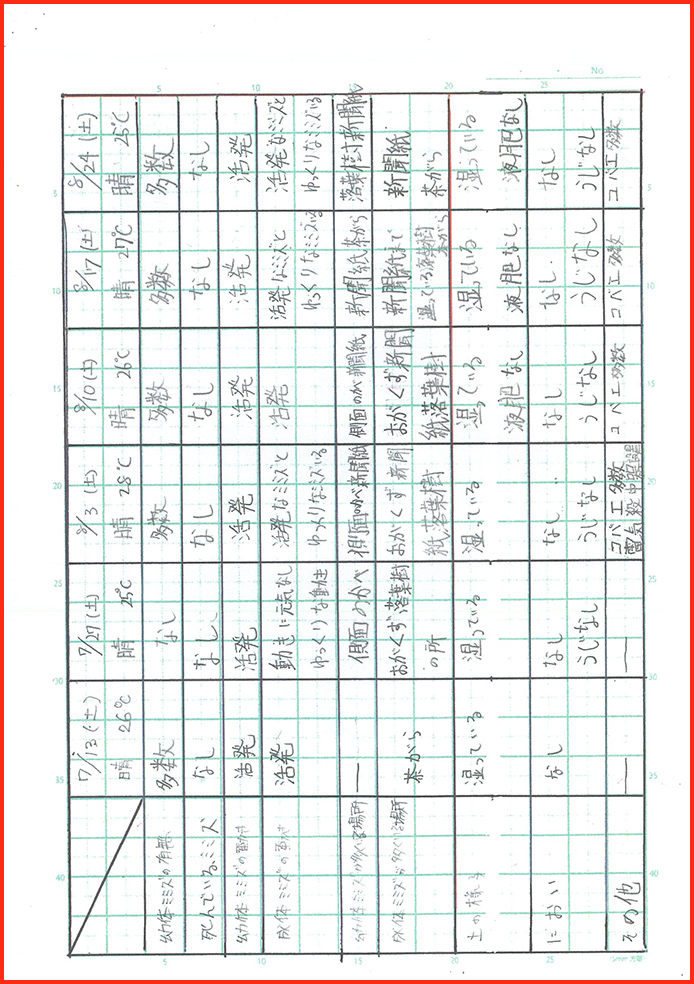 No.
7/13 (土)
晴 26℃
7/27 (土)
晴 25℃
8/3 (土)
晴 28℃
8/10 (土)
晴 26℃
8/17 (土)
晴 27℃
8/24 (土)
晴 25℃
幼体ミミズの有無
多数
なし
多数
多数
多数
多数
死んでいるミミズ
なし
なし
なし
なし
なし
なし
幼体ミミズの動き
活発
活発
活発
活発
活発
活発
成体ミミズの動き
活発
動きに元気なし
ゆっくりな動作
活発なミミズと
ゆっくりなミミズいる
活発
活発なミミズと
ゆっくりなミミズいる
活発なミミズと
ゆっくりなミミズいる
幼体ミミズが多くいる場所
—
側面のかべ
側面のかべ新聞紙
側面のかべ新聞紙
新聞紙茶がら
落葉樹新聞紙
成体ミミズが多くいる場所
茶がら
おがくず落葉樹
の所
おがくず新聞
紙落葉樹
おがくず新聞
紙落葉樹
新聞紙まで
湿っている落葉樹
茶がら
新聞紙
茶がら
土の様子
湿っている
湿っている
湿っている
湿っている
液肥なし
湿っている
液肥なし
湿っている
液肥なし
におい
なし
なし
うじなし
なし
うじなし
なし
うじなし
なし
うじなし
なし
うじなし
その他
—
—
コバエ多数
コバエ多数
コバエ多数
コバエ多数